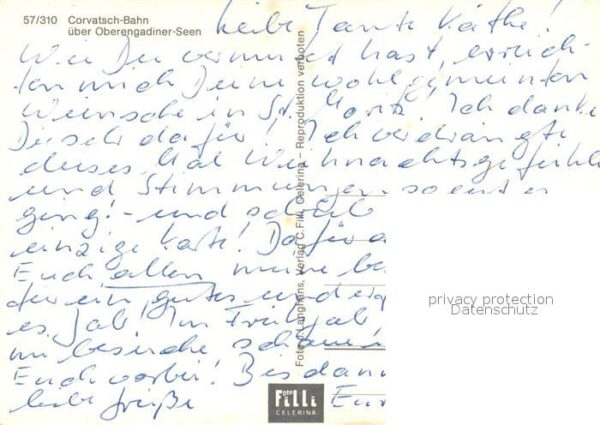 57/310 Corvatsch-Bahn
über Oberengadiner-Seen
Liebe Tante Käthe!
Wie Du vermutet hast, erreich-
ten mich Deine wohlgemeinten
Wünsche in St. Moritz. Ich danke
Dir sehr dafür! Ich verdrängte
dieses Mal Weihnachtsgefühle
und Stimmungen, so gut es
ging! - und schrieb
einzige Karte! Dafür a
Euch allen meine be
für ein gutes und
es Jahr! Im Frühjahr
im besuche
Euch vorbei! Bis dann
liebe Grüße Eur
Foto J. Langhans, Verlag C. Filli, Celerina - Reproduktion verboten
privacy protection
Datenschutz
Foto
Filli
CELERINA